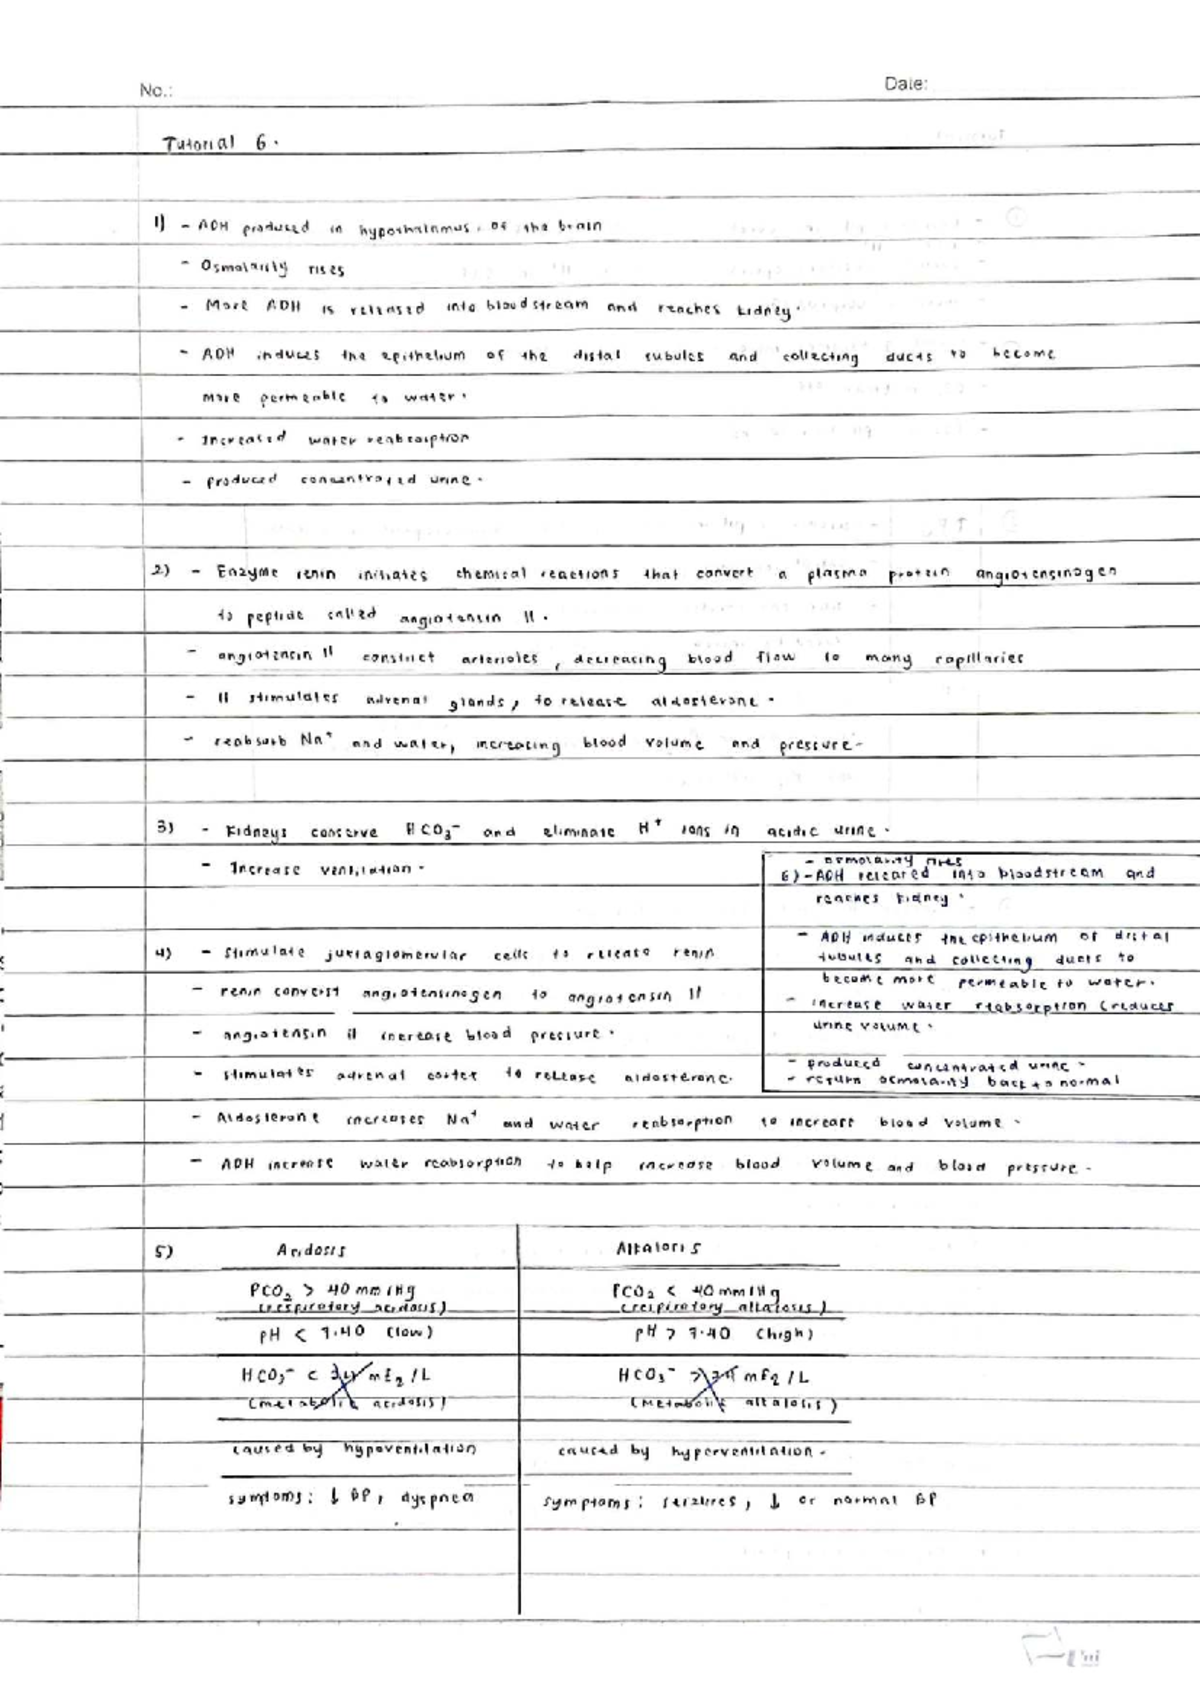 No.:
Date:
Tutorial 6.
1) - ADH produced in hypothalamus, of the brain
- Osmolarity rises
- More ADH is released into bloodstream and reaches kidney.
- ADH induces the epithelium of the distal tubules and collecting ducts to become
more permeable to water.
- Increased water reabsorption
- produced concentrated urine.
2) - Enzyme renin initiates chemical reactions that convert a plasma protein angiotensinogen
to peptide called angiotensin II.
- angiotensin II constrict arterioles, decreasing blood flow to many capillaries
- II stimulates adrenal glands, to release aldosterone.
- reabsorb Na+ and water, increasing blood volume and pressure.
3) - Kidneys conserve HCO3- and eliminate H+ ions in acidic urine.
- Increase ventilation.
4) - Stimulate juxtaglomerular cells to release renin
- renin converst angiotensinogen to angiotensin II
- angiotensin II increase blood pressure.
- stimulates adrenal cortex to release aldosterone.
- Aldosterone increases Na+ and water reabsorption to increase blood volume.
- ADH increase water reabsorption to help increase blood volume and blood pressure.
- osmolarity rises
6) - ADH released into bloodstream and
reaches kidney.
- ADH induces the epithelium of distal
tubules and collecting ducts to
become more permeable to water.
- increase water reabsorption (reduces
urine volume.
- produced concentrated urine.
- return osmolarity back to normal
5) Acidosis Alkalosis
PCO2 > 40 mmHg PCO2 < 40 mmHg
(respiratory acidosis) (respiratory alkalosis)
pH < 7.40 (low) pH > 7.40 (high)
HCO3- < 24 mEq/L HCO3- > 24 mEq/L
(metabolic acidosis) (Metabolic alkalosis)
caused by hypoventilation caused by hyperventilation.
symptoms: ↓ BP, dyspnea symptoms: seizures, ↓ or normal BP